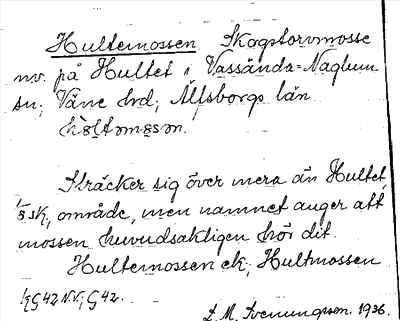 Hultemossen Skogstorvmosse
nv. på Hultet i Vassända-Naglum
sn; Väne hd; Älfsborgs län.
Sträcker sig över mera än Hultet,
område, men namnet anger att
mossen huvudsakligen hör dit.
Hultemossen ek; Hultmossen
G42 NV; G42.
L. M. Svenungsson. 1936.